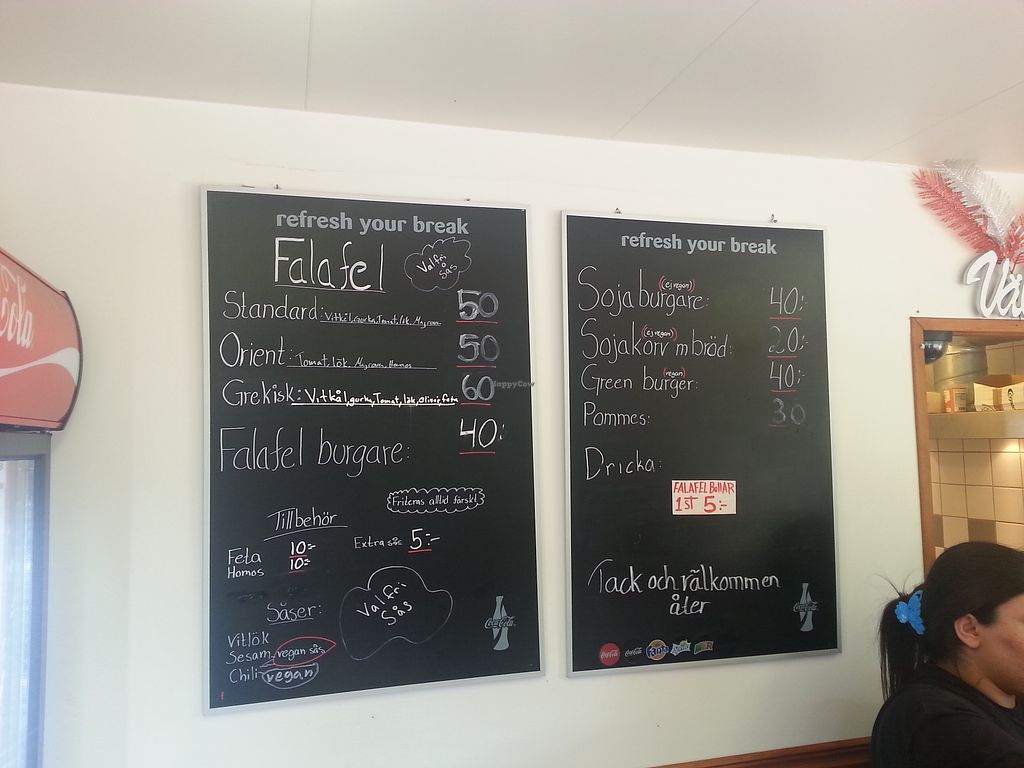 refresh your break
Falafel
Valfri
sås
Standard: Vitkål, Gurka, Tomat, lök, Majronn 50
Orient: Tomat, lök, Majronn, Homos 50
Grekisk: Vitkål, gurka, Tomat, lök, Oliver, feta 60
Falafel burgare: 40:
Friteras alltid färskt
Tillbehör
Feta 10:-
Homos 10:-
Extra sås 5:-
Valfri
Sås
Såser:
Vitlök
Sesam vegan sås
Chili vegan
Coca-Cola
refresh your break
Soja burgare: (ej vegan) 40:-
Sojakorv m bröd: (ej vegan) 20:-
Green burger: (vegan) 40:-
Pommes: 30
Dricka:
FALAFEL BOLLAR
1ST 5:-
Tack och välkommen
åter
Coca-Cola
HappyCow
Cola